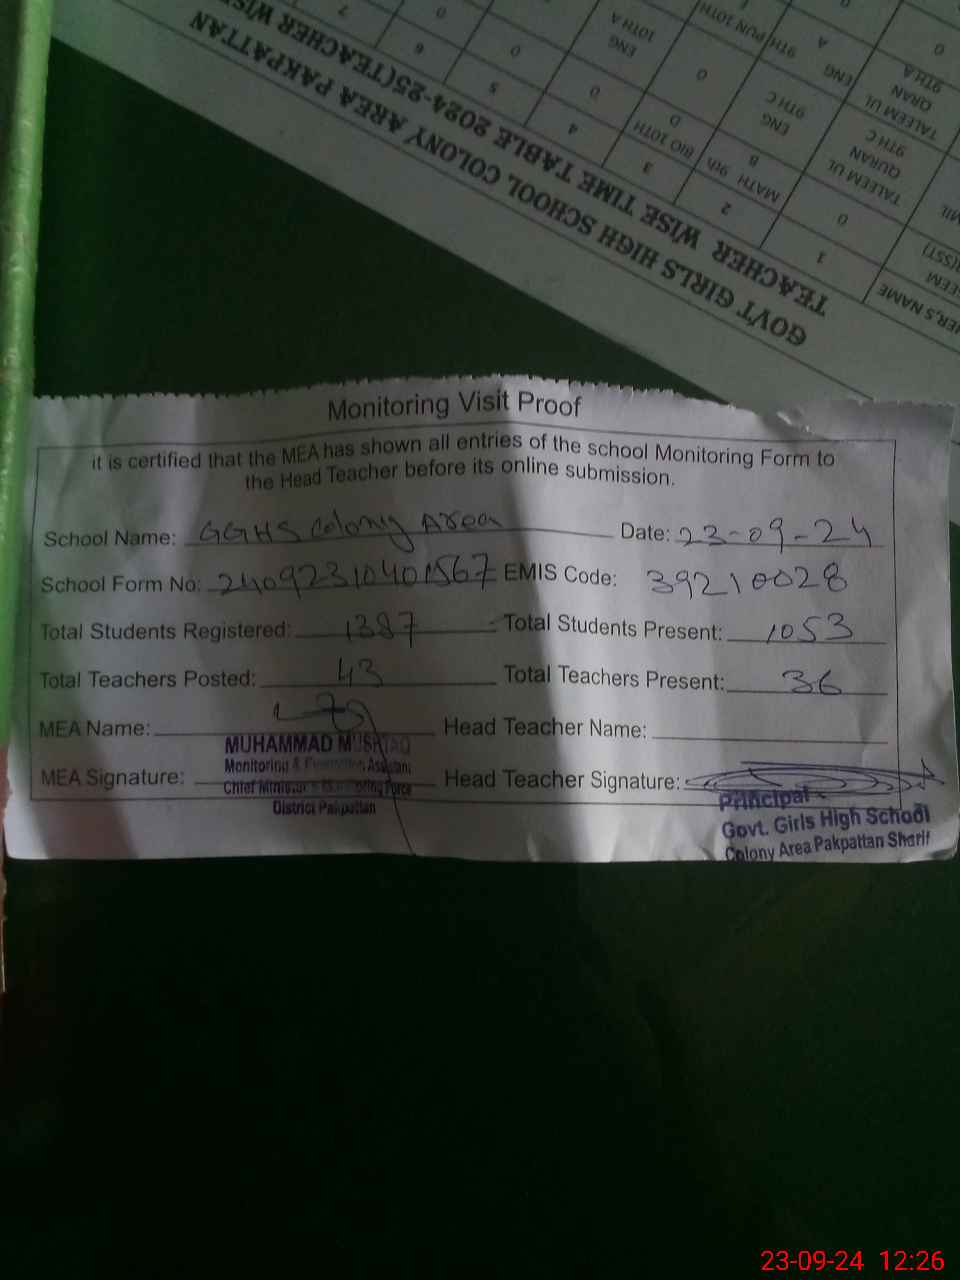 GOVT GIRLS HIGH SCHOOL COLONY AREA PAKPATTAN
TEACHER WISE TIME TABLE 2024-25(TEACHER WISE
1 2 3 4 5 6 7
0 MATH 9th B BIO 10TH D 0 0 0
TALEEM UL QURAN 9TH C ENG 9TH C 0 ENG 10TH A
TALEEM UL QRAN 9TH A ENG A 9TH PUN 10TH
Monitoring Visit Proof
it is certified that the MEA has shown all entries of the school Monitoring Form to
the Head Teacher before its online submission.
School Name: GGHS Colony Area Date: 23-09-24
School Form No: EMIS Code: 39210028
Total Students Registered: 1387 Total Students Present: 1053
Total Teachers Posted: 43 Total Teachers Present: 36
MEA Name: Head Teacher Name:
MUHAMMAD MUSHTAQ
Monitoring & Evaluation Assistant
MEA Signature: Head Teacher Signature:
Chief Minister's Monitoring Force
District Pakpattan
Principal
Govt. Girls High School
Colony Area Pakpattan Sharif
23-09-24 12:26